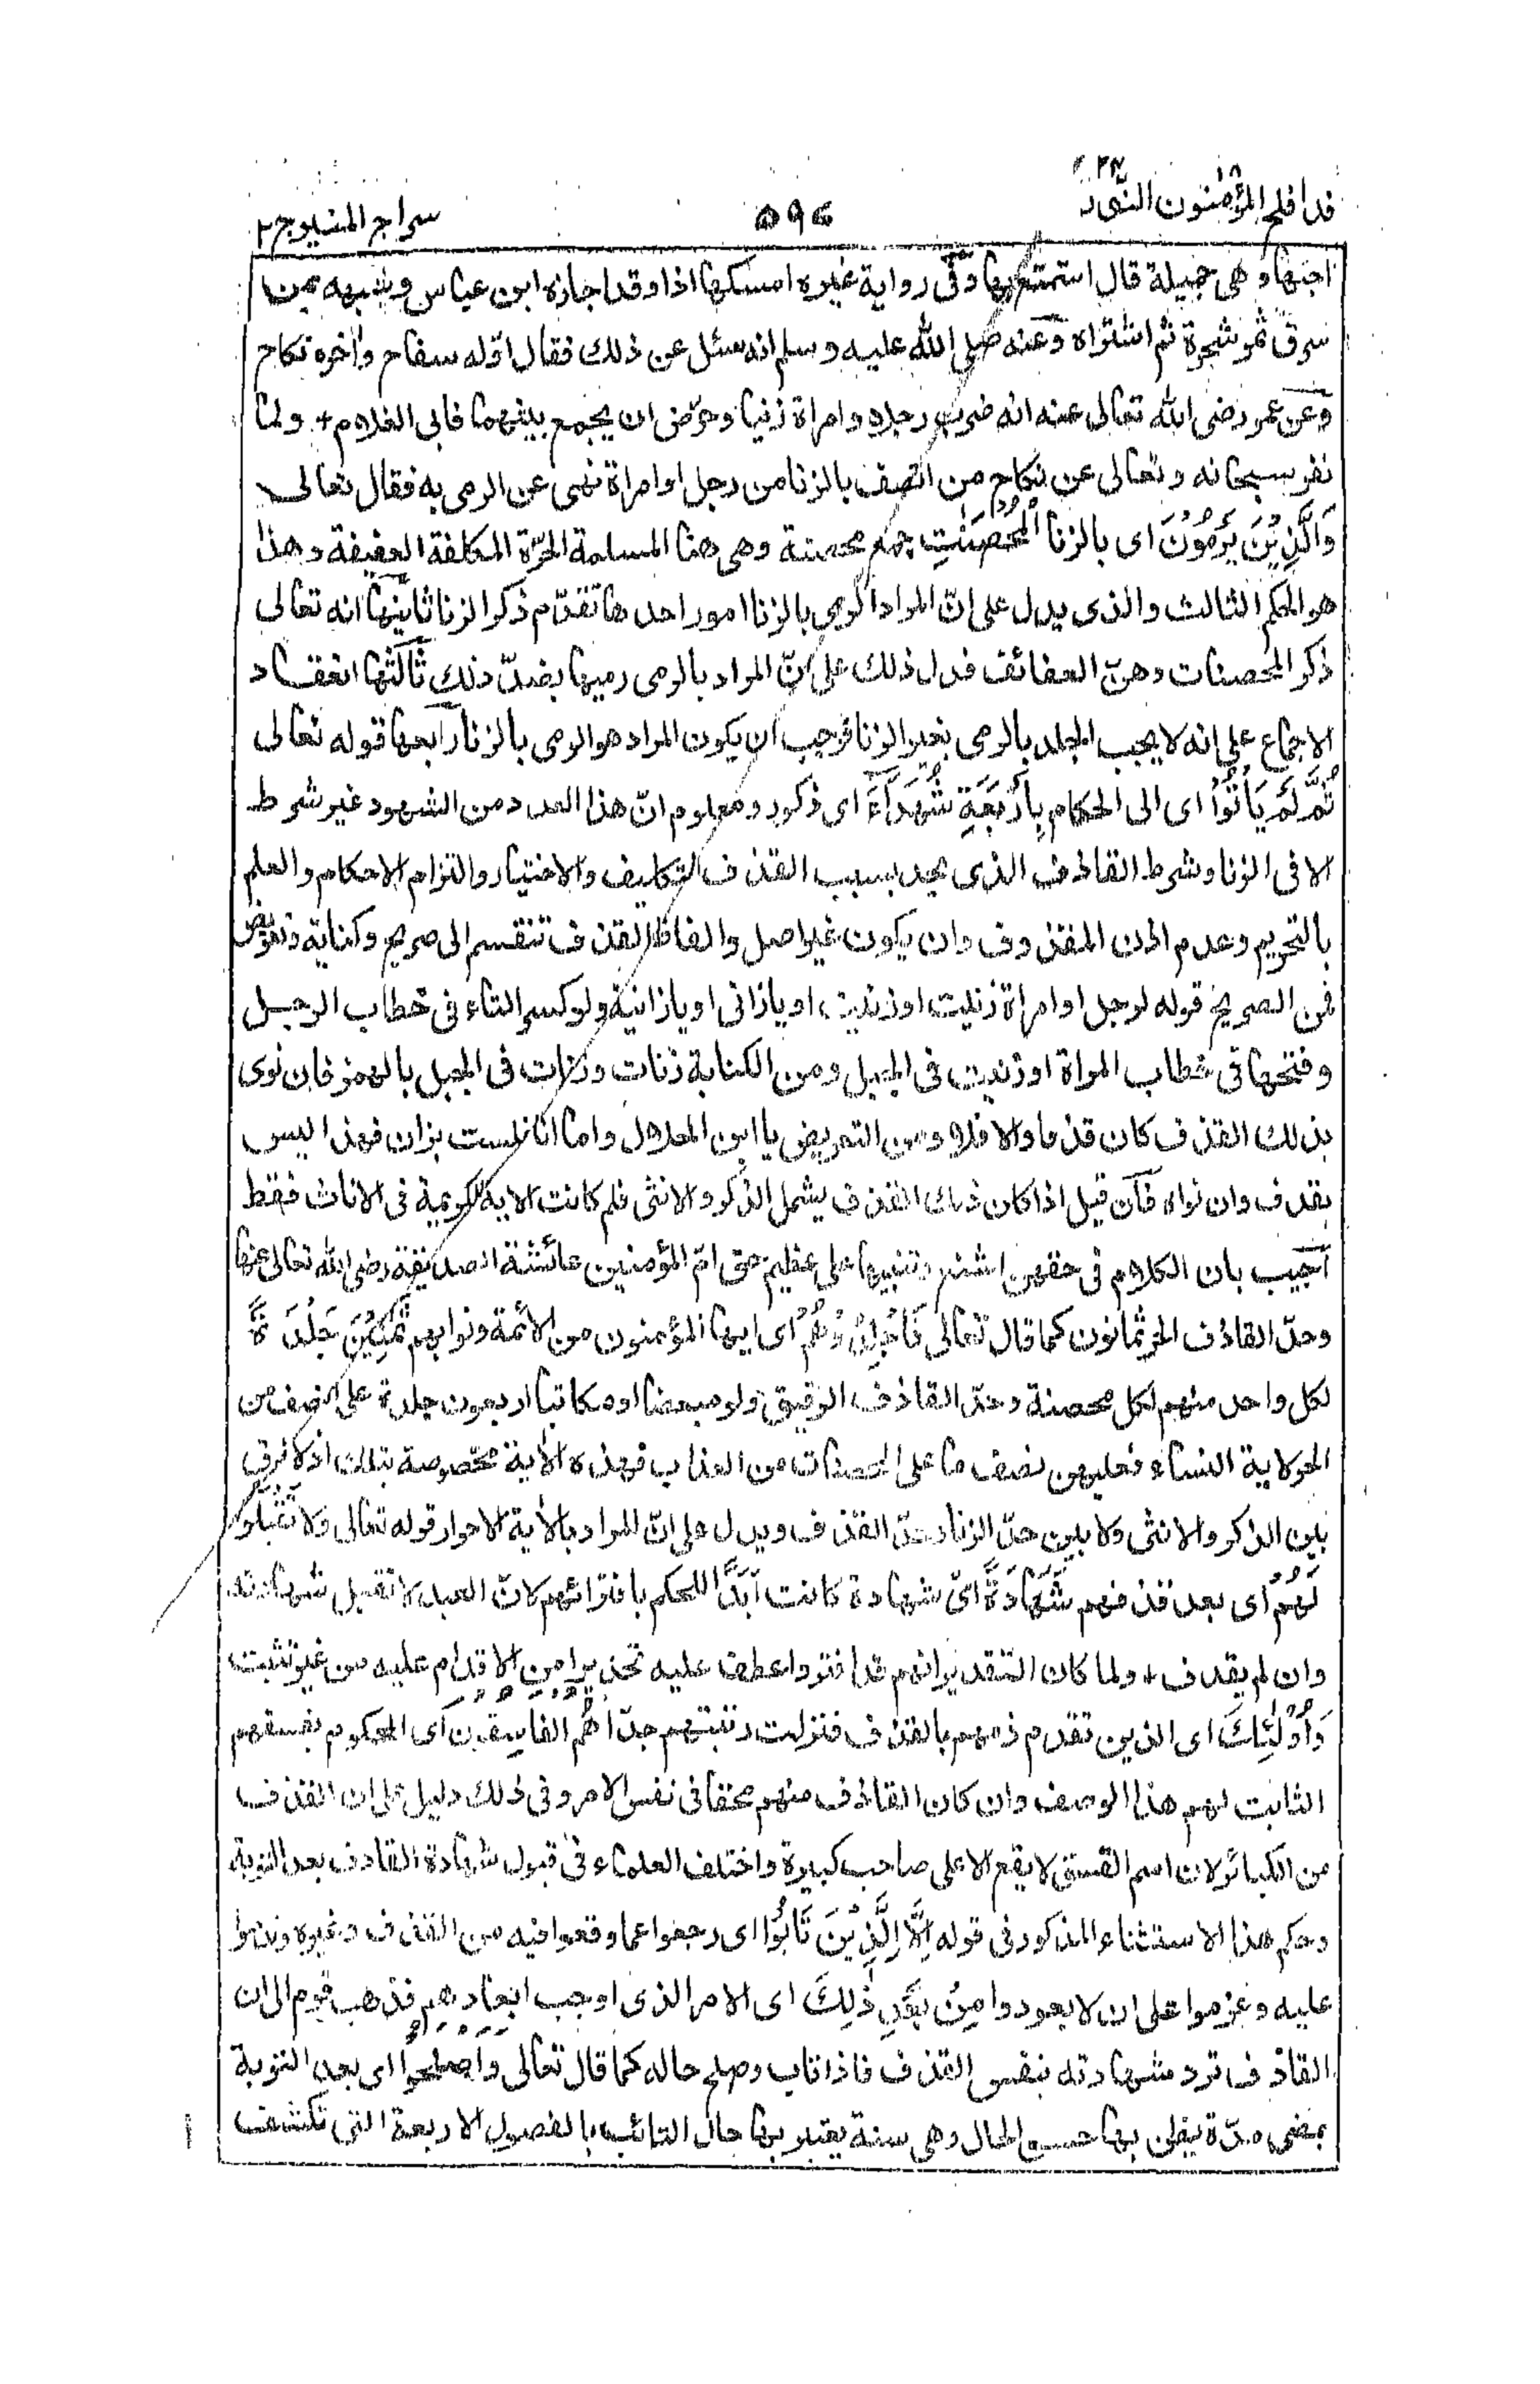 قد افلح المؤمنون ١٨ النور ٢٤
٥٩٦
سراج المنير ج ٢
احبها وهى جميلة قال استمتع بها وفى رواية غيره امسكها اذا وقد اجازه ابن عباس وشبهه بمن
سرق ثمر شجرة ثم اشتراه وعنه صلى الله عليه وسلم انه سئل عن ذلك فقال اوّله سفاح واٰخره نكاح
وعن عمر رضى الله تعالى عنه انه ضرب رجلا وامراة زنيا وحرّض ان يجمع بينهما فابى الغلام + ولمّا
نفر سبحانه وتعالى عن نكاح من اتصف بالزنا من رجل او امراة نهى عن الرمى به فقال تعالى
وَالَّذِيْنَ يَرْمُوْنَ اى بالزنا الْمُحْصَنٰتِ جمع محصنة وهى هنا المسلمة الحرّة المكلفة العفيفة وهذا
هو الحكم الثالث والذى يدل على انّ المراد الرمى بالزنا امور احدها تقدّم ذكر الزنا ثانيها انه تعالى
ذكر المحصنات وهنّ العفائف فدل ذلك على انّ المراد بالرمى رميها بضدّ ذلك ثالثها انعقاد
الاجماع على انه لا يجب الجلد بالرمى بغير الزنا فوجب ان يكون المراد هو الرمى بالزنا رابعها قوله تعالى
ثُمَّ لَمْ يَأْتُوْا اى الى الحكام بِأَرْبَعَةِ شُهَدَآءَ اى ذكور ومعلوم انّ هذا العدد من الشهود غير شرط
الا فى الزنا وشرط القاذف الذى يحد بسبب القذف التكليف والاختيار والتزام الاحكام والعلم
بالتحريم وعدم اذن المقذوف وان يكون غير اصل والفاظ القذف تنقسم الى صريح وكناية وتعريض
فمن الصريح قوله لرجل او امراة زنيت او زنيت او يا زانى او يا زانية ولو كسر التاء فى خطاب الرجل
وفتحها فى خطاب المراة او زنيت فى الجبل ومن الكناية زنات وزنات فى الجبل بالهمز فان نوى
بذلك القذف كان قذفا والا فلا ومن التعريض يا ابن الحلال واما انا فلست بزان فهذا ليس
بقذف وان نواه فان قيل اذا كان ذلك القذف يشمل الذكر والانثى فلم كانت الاية الكريمة فى الاناث فقط
اجيب بان الكلام فى حقهن اشنع وتنبيها على عظيم حق امّ المؤمنين عائشة الصديقة رضى الله تعالى عنها
وحدّ القاذف الحر ثمانون كما قال تعالى فَاجْلِدُوْهُمْ اى ايها المؤمنون من الائمة ونوابهم ثَمٰنِيْنَ جَلْدَةً
لكل واحد منهم لكل محصنة وحدّ القاذف الرقيق ولو مبعضا او مكاتبا اربعون جلدة على النصف من
الحر لاية النساء فعليهن نصف ما على المحصنات من العذاب فهذه الاٰية مخصوصة بتلك اذ لا فرق
بين الذكر والانثى ولا بين حدّ الزنا وحدّ القذف ويدل على انّ المراد بالاٰية الاحرار قوله تعالى وَلَا تَقْبَلُوْا
لَهُمْ اى بعد قذفهم شَهَادَةً اىّ شهادة كانت اَبَدًا للحكم بافترائهم لانّ العبد لا تقبل شهادته
وان لم يقذف + ولما كان التقدير انهم قد افتروا عطف عليه تحذيرا من الاقدام عليه من غير تثبت
وَاُوْلٰٓئِكَ اى الذين تقدم ذمهم بالقذف فنزلت رتبتهم جدّا هُمُ الْفَاسِقُوْنَ اى المحكوم بفسقهم
الثابت لهم هذا الوصف وان كان القاذف منهم محقا فى نفس الامر وفى ذلك دليل على ان القذف
من الكبائر لان اسم الفسق لا يقع الا على صاحب كبيرة واختلف العلماء فى قبول شهادة القاذف بعد التوبة
وحكم هذا الاستثناء المذكور فى قوله اِلَّا الَّذِيْنَ تَابُوْا اى رجعوا عما وقعوا فيه من القذف وغيره وندموا
عليه وعزموا على ان لا يعودوا مِنْ بَعْدِ ذٰلِكَ اى الامر الذى اوجب ابعادهم فذهب قوم الى ان
القاذف ترد شهادته بنفس القذف فاذا تاب وصلح حاله كما قال تعالى وَاَصْلَحُوْا اى بعد التوبة
بمضى مدّة يظن بها حسن الحال وهى سنة يعتبر بها حال التائب بالفصول الاربعة التى تكشف